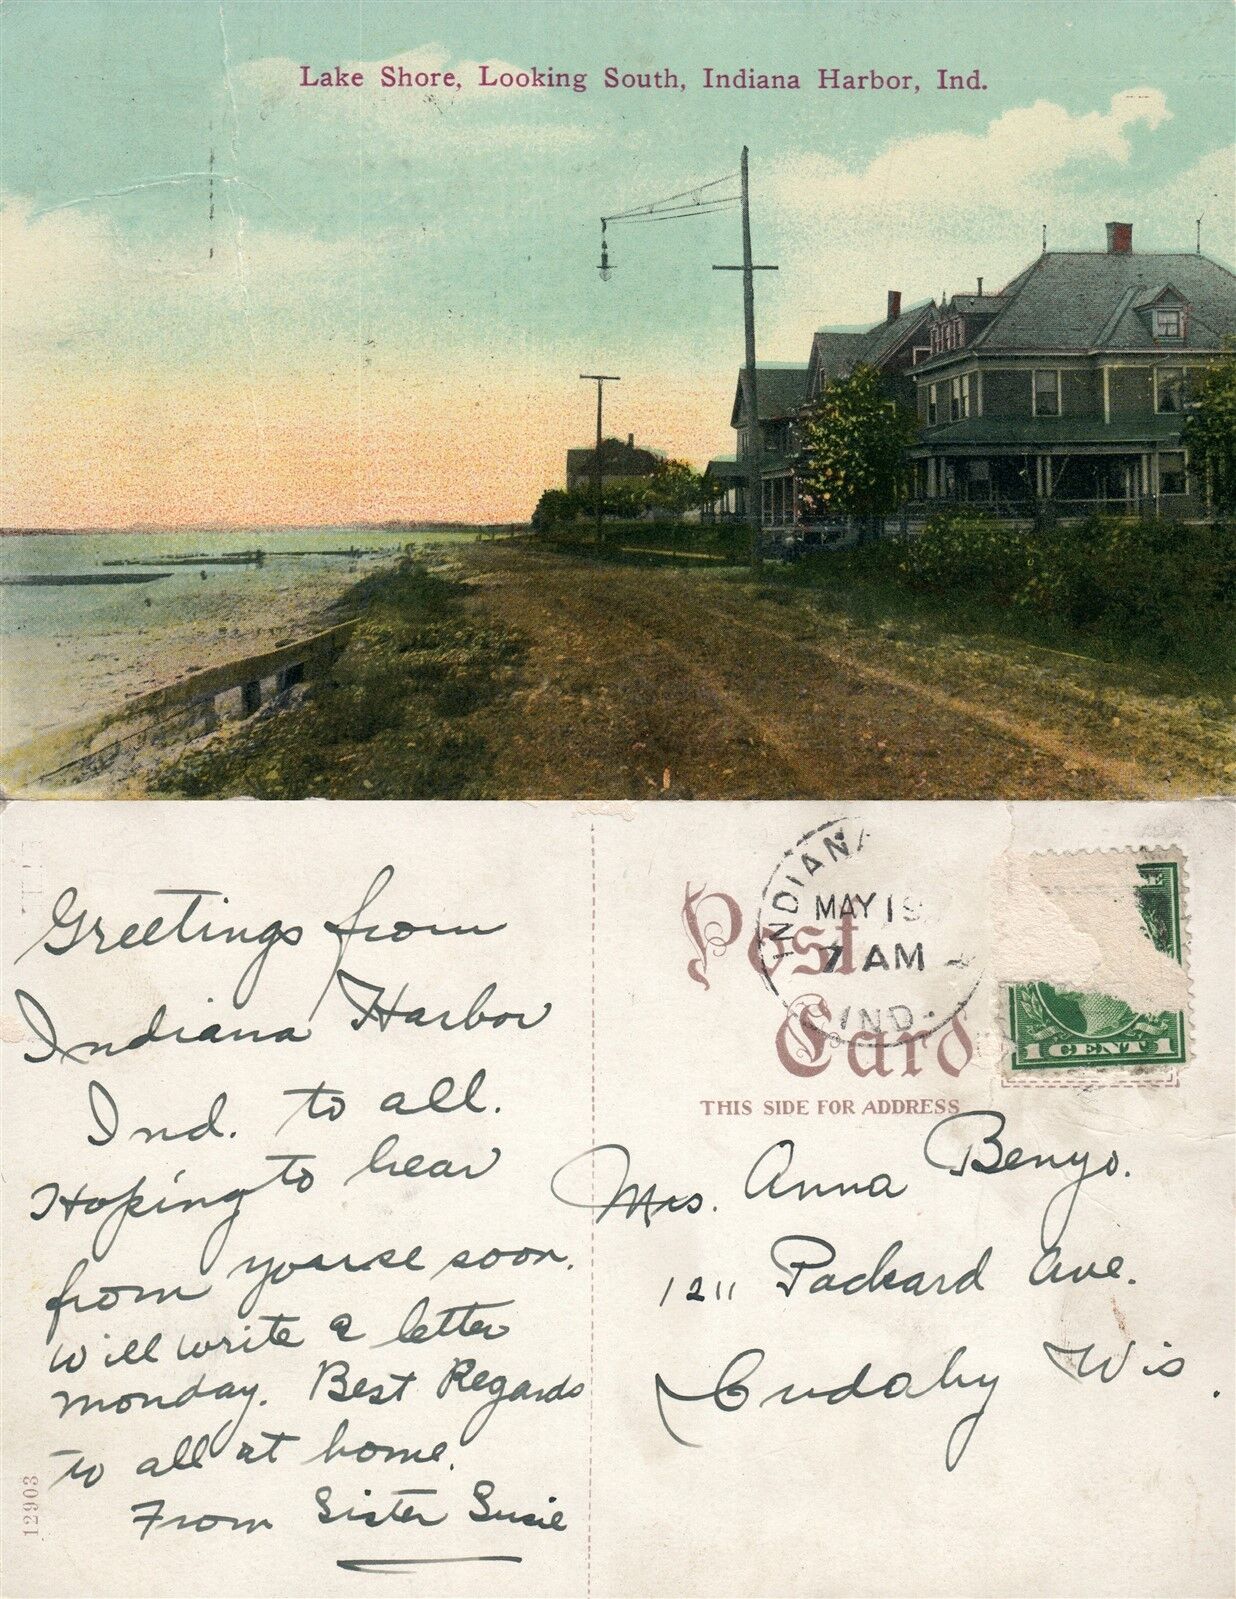 Lake Shore, Looking South, Indiana Harbor, Ind.
Greetings from
Indiana Harbor
Ind. to all.
Hoping to hear
from yourse soon.
Will write a letter
Monday. Best Regards
to all at home.
From Sister Susie
12903
Post
Card
THIS SIDE FOR ADDRESS
INDIANA
MAY 19
7 AM
IND.
1 CENT 1
Mrs. Anna Benyo.
1211 Packard Ave.
Cudahy Wis.